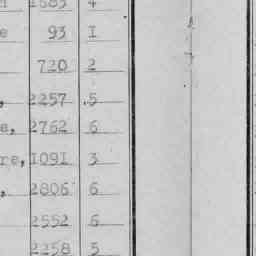 1583 4
e 93 I
720 2
, 2257 .5
e, 2762 6
re, I09I 3
, 2806 6
2552 6
2258 5